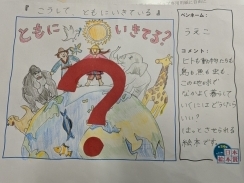 『こうして ともにいきている』
ともに いきてる?
ペンネーム:
うえこ
コメント:
ヒトと動物たちも
鳥も魚も虫も
この地球の中で
なかよく暮らして
いくにはどうしたら
いい?
はっとさせられる
絵本です